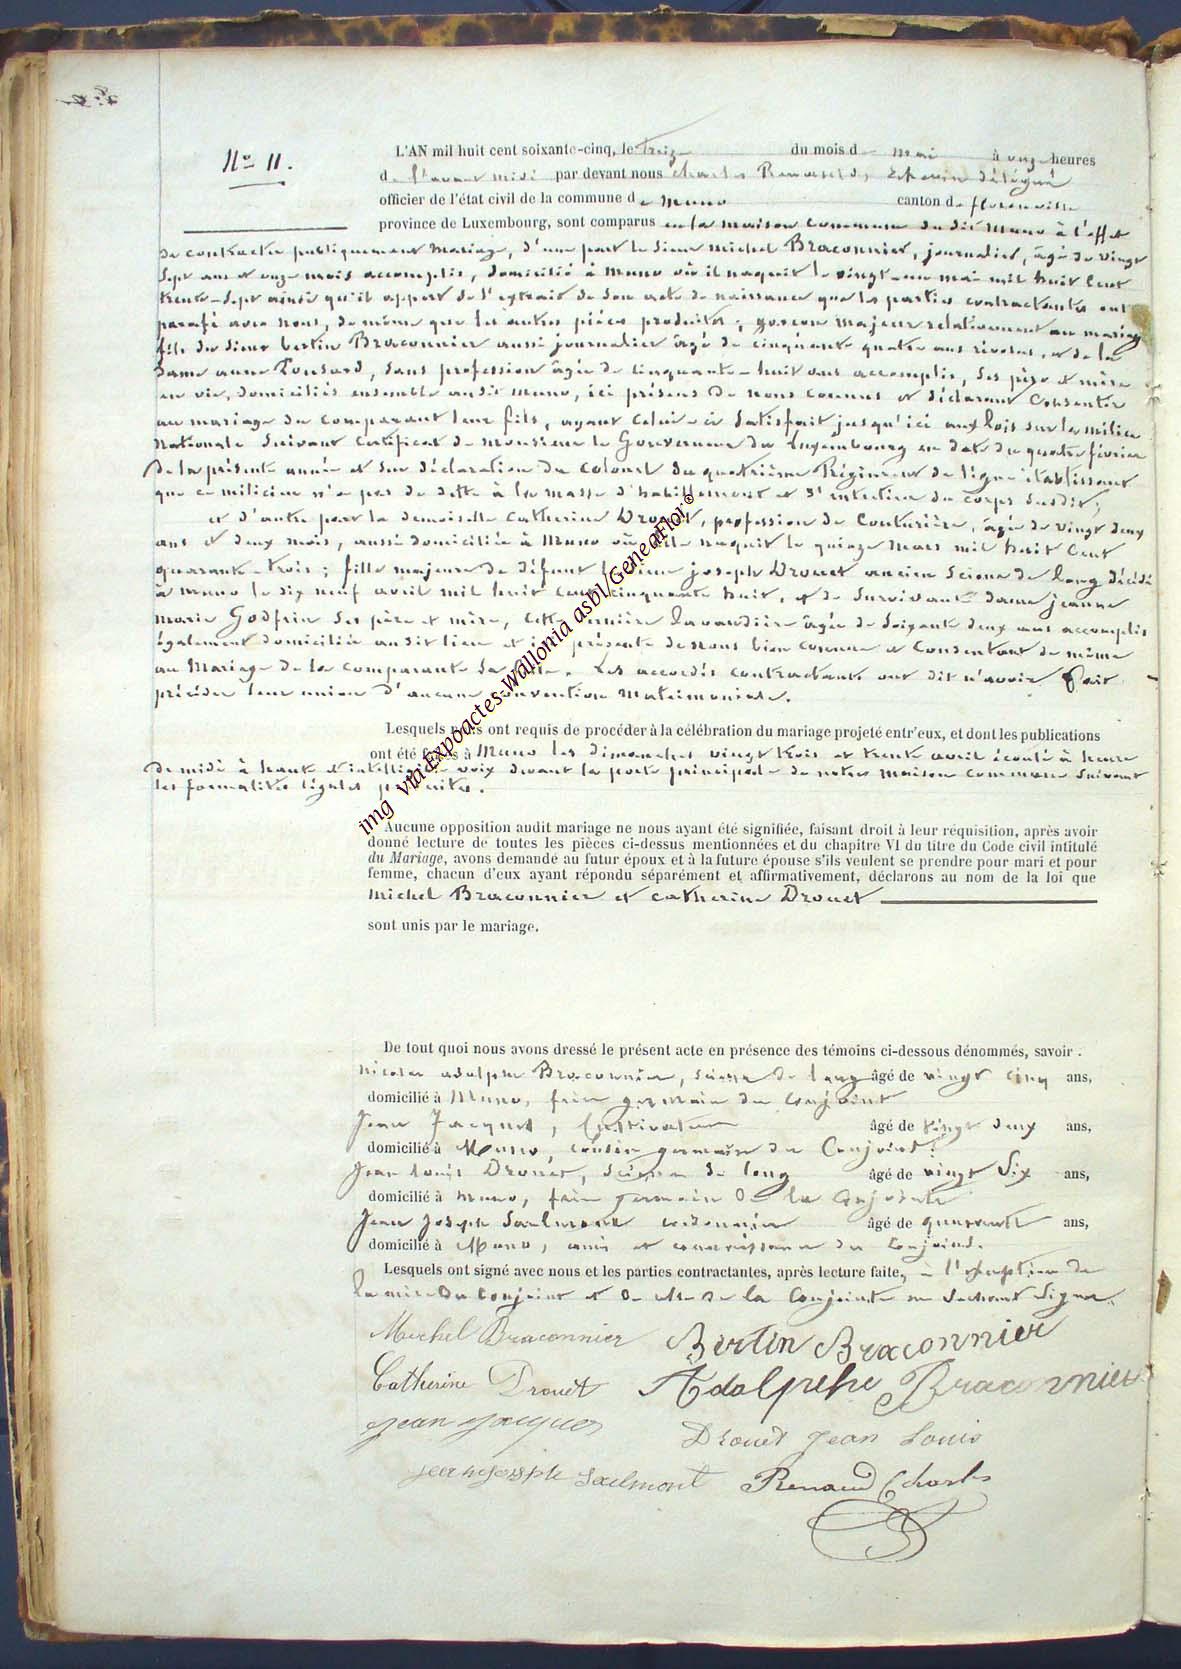 No 11.
L'AN mil huit cent soixante-cinq, le Treize du mois de mai à onze heures
de l'avant midi par devant nous charles Renauld, Echevin délégué
officier de l'état civil de la commune de muno canton de florenville
province de Luxembourg, sont comparus en la maison commune du dit Muno à l'effet
de contracter publiquement mariage, d'une part le sieur michel Braconnier, journalier, âgé de vingt
sept ans et onze mois accomplis, domicilié à Muno où il naquit le vingt-un mai mil huit cent
trente-sept ainsi qu'il appert de l'extrait de son acte de naissance que les parties contractantes ont
parafé avec nous, de même que les autres pièces produites; garçon majeur relativement au mariage
fils du sieur bertin Braconnier aussi journalier âgé de cinquante quatre ans révolus, et de la
dame anne Ponsard, sans profession âgée de cinquante-huit ans accomplis, ses père et mère
en vie, domiciliés ensemble audit muno, ici présens de nous connus et déclarant consentir
au mariage du comparant leur fils, ayant celui-ci satisfait jusqu'ici aux lois sur la milice
nationale suivant certificat de monsieur le Gouverneur du Luxembourg en date du quatre février
de la présente année et sur déclaration du colonel du quatrième Régiment de ligne établissant
que ce milicien n'a pas de dette à la masse d'habillement et d'entretien du corps susdit;
et d'autre part la demoiselle catherine Drouet, profession de couturière, âgée de vingt deux
ans et deux mois, aussi domiciliée à Muno où elle naquit le quinze mars mil huit cent
quarante-trois; fille majeure de défunt le sieur joseph Drouet ancien scieur de long décédé
à muno le dix neuf avril mil huit cent cinquante huit, et de survivante dame jeanne
marie Godfrin ses père et mère, cette dernière lavandière âgée de soixante deux ans accomplis
également domiciliée audit lieu et ici présente de nous bien connue et consentant de même
au mariage de la comparante sa fille. Les accordés contractants ont dit n'avoir fait
précéder leur union d'aucune convention matrimoniale.
Lesquels nous ont requis de procéder à la célébration du mariage projeté entr'eux, et dont les publications
ont été faites à Muno les dimanches vingt trois et trente avril écoulé à heure
de midi à haute et intelligible voix devant la porte principale de notre maison commune suivant
les formalités légales prescrites.
Aucune opposition audit mariage ne nous ayant été signifiée, faisant droit à leur réquisition, après avoir
donné lecture de toutes les pièces ci-dessus mentionnées et du chapitre VI du titre du Code civil intitulé
du Mariage, avons demandé au futur époux et à la future épouse s'ils veulent se prendre pour mari et pour
femme, chacun d'eux ayant répondu séparément et affirmativement, déclarons au nom de la loi que
michel Braconnier et catherine Drouet
sont unis par le mariage.
De tout quoi nous avons dressé le présent acte en présence des témoins ci-dessous dénommés, savoir :
nicolas adolphe Braconnier, scieur de long âgé de vingt cinq ans,
domicilié à Muno, frère germain du conjoint
Jean Jacques, Cultivateur âgé de vingt deux ans,
domicilié à Muno, cousin germain du Conjoint.
Jean Louis Drouet, scieur de long âgé de vingt Six ans,
domicilié à muno, frère germain de la Conjointe
Jean Joseph Saelmont cordonnier âgé de quarante ans,
domicilié à Muno, ami et connaissance du Conjoint.
Lesquels ont signé avec nous et les parties contractantes, après lecture faite, à l'exeption de
la mère du Conjoint et de celle de la Conjointe ne sachant Signer.
Michel Braconnier Bertin Braconnier
Catherine Drouet Adolphe Braconnier
jean jacques Drouet Jean Louis
jean joseph Saelmont Renauld Charles
img via Expoactes-Wallonia asbl/GeneaFlor©